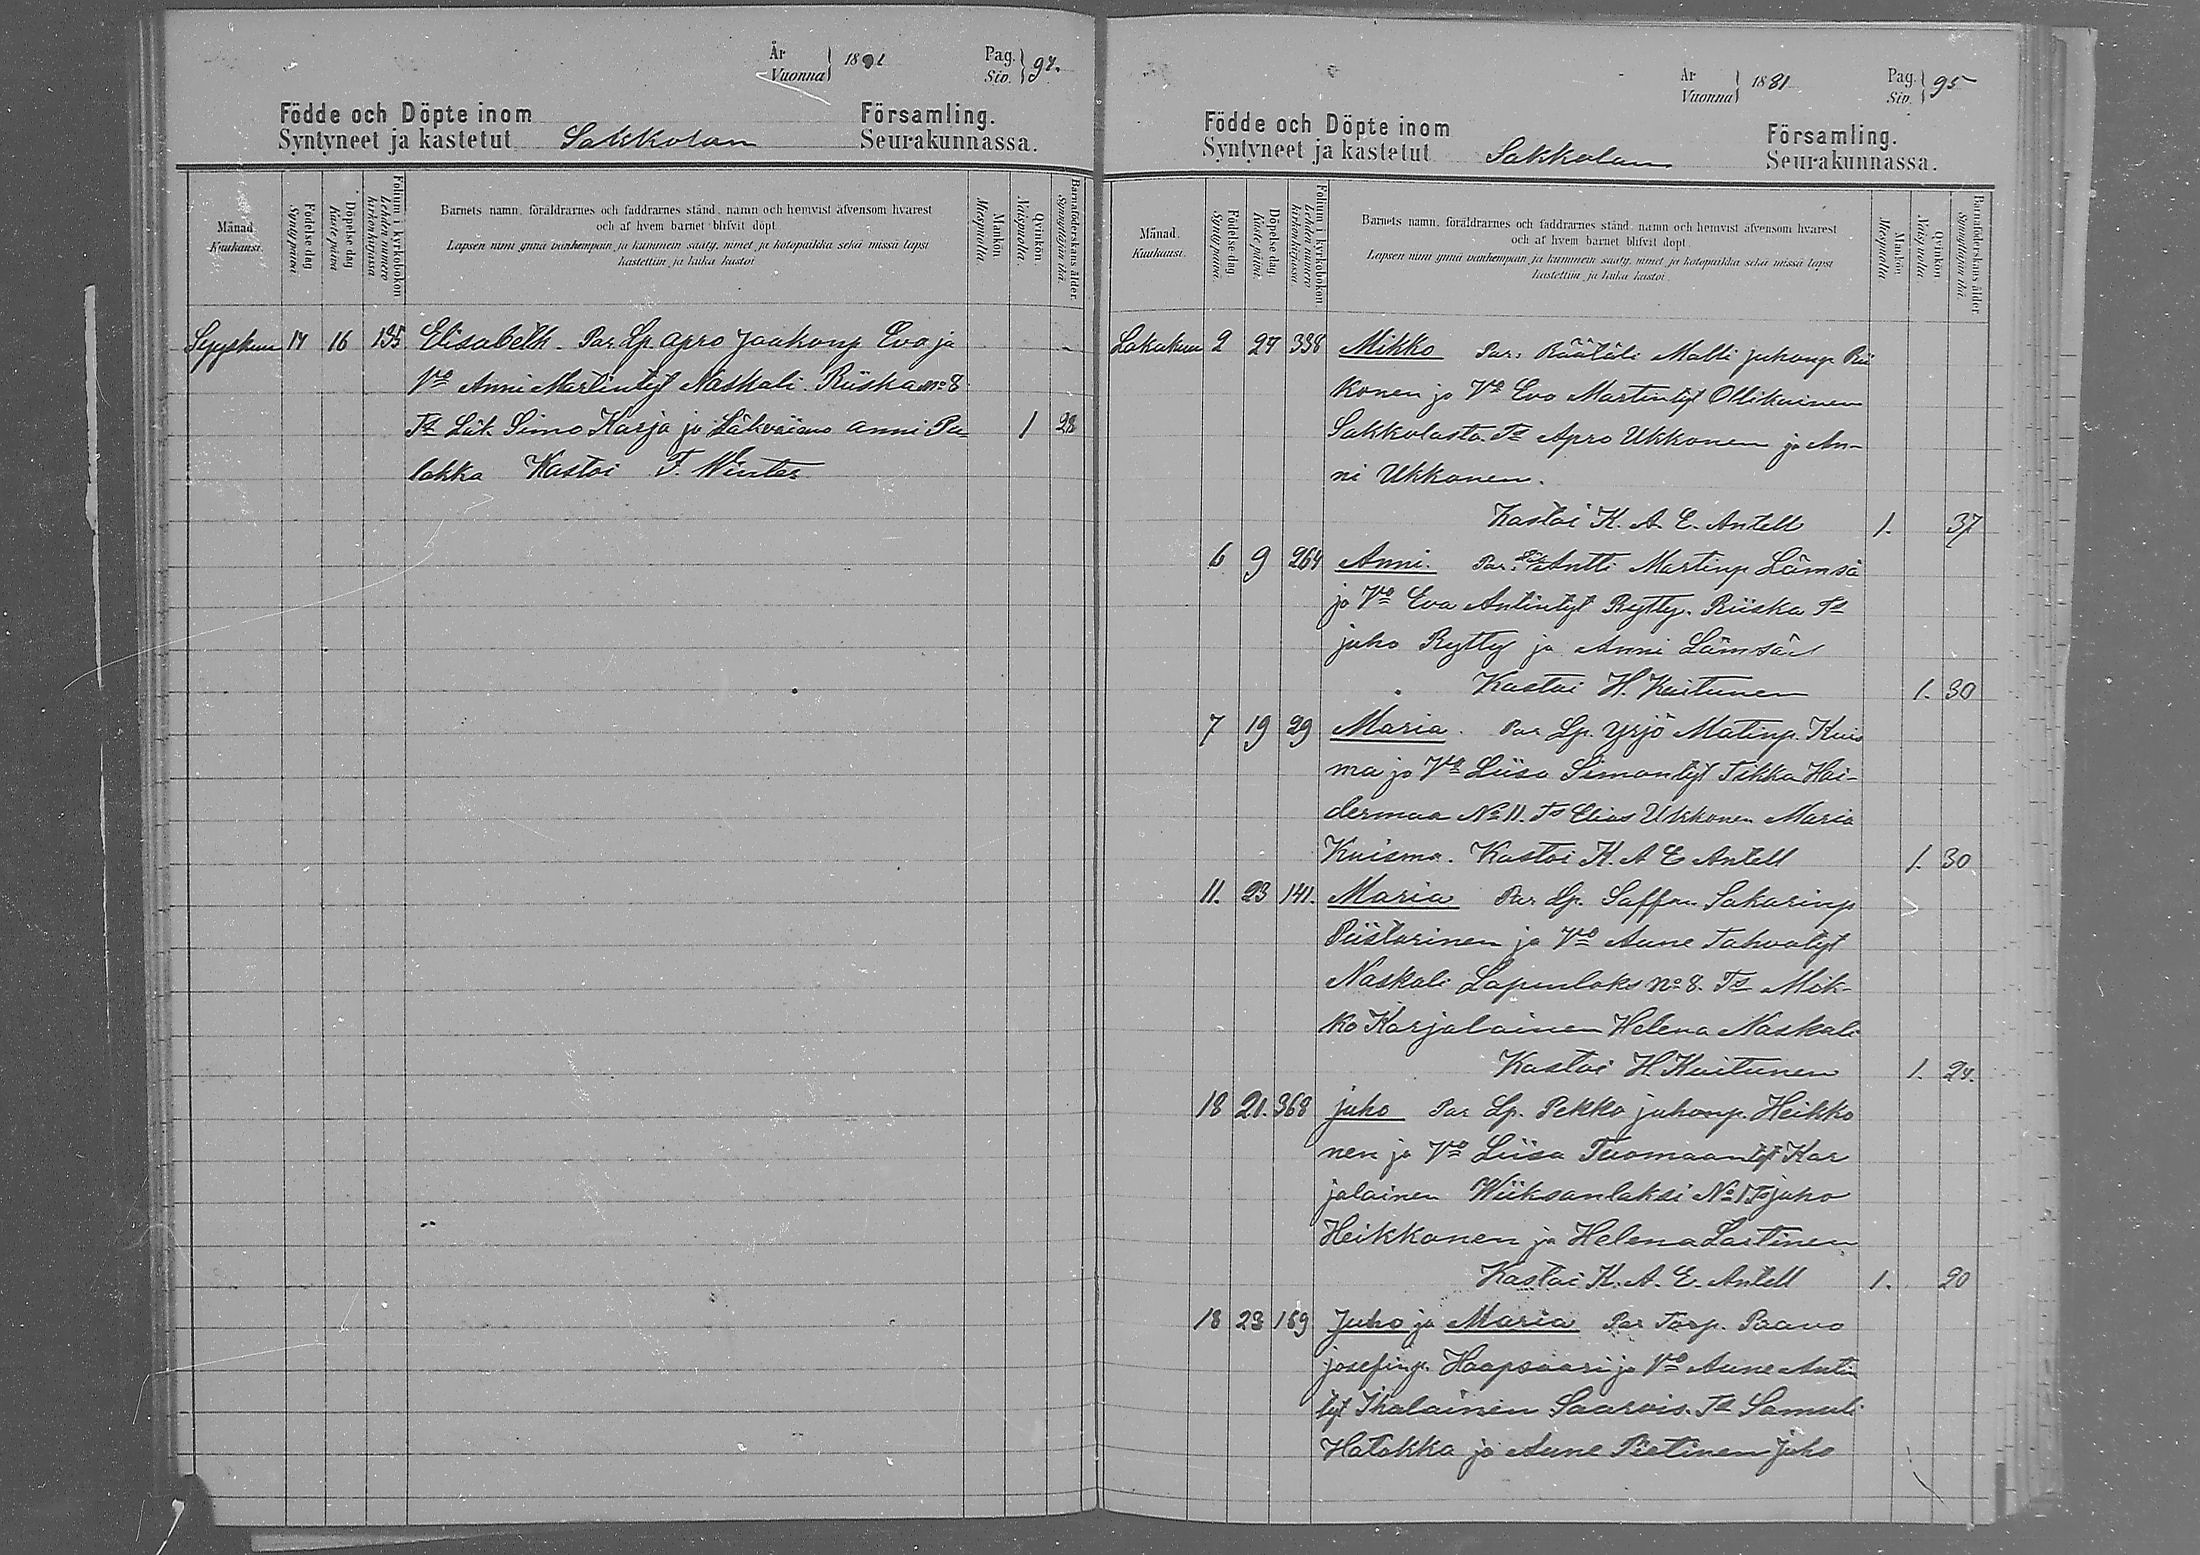 År
Vuonna
1881
Pag.
Siv.
94.
Födde och Döpte inom
Församling.
Syntyneet ja kastetut Sakkolan Seurakunnassa.
Månad.
Kuukausi.
Födelsedag
Syntypäivä
Döpelsedag
Kastepäivä
Folium i kyrkoboken
Lehden numero kirkonkirjassa
Barnets namn, föräldrarnes och faddrarnes stånd, namn och hemvist äfvensom hvarest
och af hvem barnet blifvit döpt.
Lapsen nimi ynnä vanhempain ja kummein sääty, nimet ja kotopaikka sekä missä lapsi
kastettiin ja kuka kastoi.
Mankön
Miespuolia
Qvinkön
Naispuolia
Barnaföderskans ålder.
Synnyttäjän ikä.
Syyskuu 14 16 135 Elisabeth. Par. Lp. Apro Jaakonp. Evo ja
Vo Anni Martintyt Naskali Riiska No 8
Ts Läk. Simo Karja ja Läkvaimo Anni Pa- 1 28
lakka Kastoi F. Winter
År
Vuonna
1881
Pag.
Siv.
95
Födde och Döpte inom
Församling.
Syntyneet ja kastetut Sakkolan Seurakunnassa.
Månad.
Kuukausi.
Födelsedag
Syntypäivä
Döpelsedag
Kastepäivä
Folium i kyrkoboken
Lehden numero kirkonkirjassa
Barnets namn, föräldrarnes och faddrarnes stånd, namn och hemvist äfvensom hvarest
och af hvem barnet blifvit döpt.
Lapsen nimi ynnä vanhempain ja kummein sääty, nimet ja kotopaikka sekä missä lapsi
kastettiin ja kuka kastoi.
Mankön
Miespuolia
Qvinkön
Naispuolia
Barnaföderskans ålder
Synnyttäjän ikä
Lokakuu 2 27 338 Mikko Par: Räätäli Matti Juhonp. Rii
konen ja Vo Eva Martintyt Ollikainen
Sakkolasta. Ts Apro Ukkonen ja An-
ni Ukkonen.
Kastoi K. A. E. Antell 1. 37
6 9 264 Anni. Par. Antti Martinp. Lämsä
ja Vo Eva Antintyt Rytty. Riiska Ts
Juho Rytty ja Anni Lämsä
Kastoi H. Kuitunen 1. 30
7 19 29 Maria. Par Lp. Yrjö Matinp. Kuis
ma ja Vo Liisa Simontyt Tikka Hai-
dermaa No 11. Ts Elias Ukkonen Maria
Kuisma. Kastoi K. A E Antell 1. 30
11. 23 141. Maria Par Lp. Saffon Sakarinp
Puistarinen ja Vo Aune Tahvotyt
Naskali Lapinlaks No 8. Ts Mik-
ko Karjalainen Helena Naskali
Kastoi H. Kuitunen 1. 24.
18 21. 368 Juho Par Lp. Pekko Juhonp. Heikko
nen ja Vo Liisa Tuomaantyt Kar
jalainen Wiiksanlaksi No 1 Ts Juho
Heikkonen ja Helena Lastinen
Kastoi K. A. E. Antell 1. 20
18 23 169 Juho ja Maria Par Torp. Paavo
Josefinp. Haapsaari ja Vo Aune Antin
tyt Ihalainen Saarois. Ts Samuli
Hatakka ja Aune Pietinen Juho